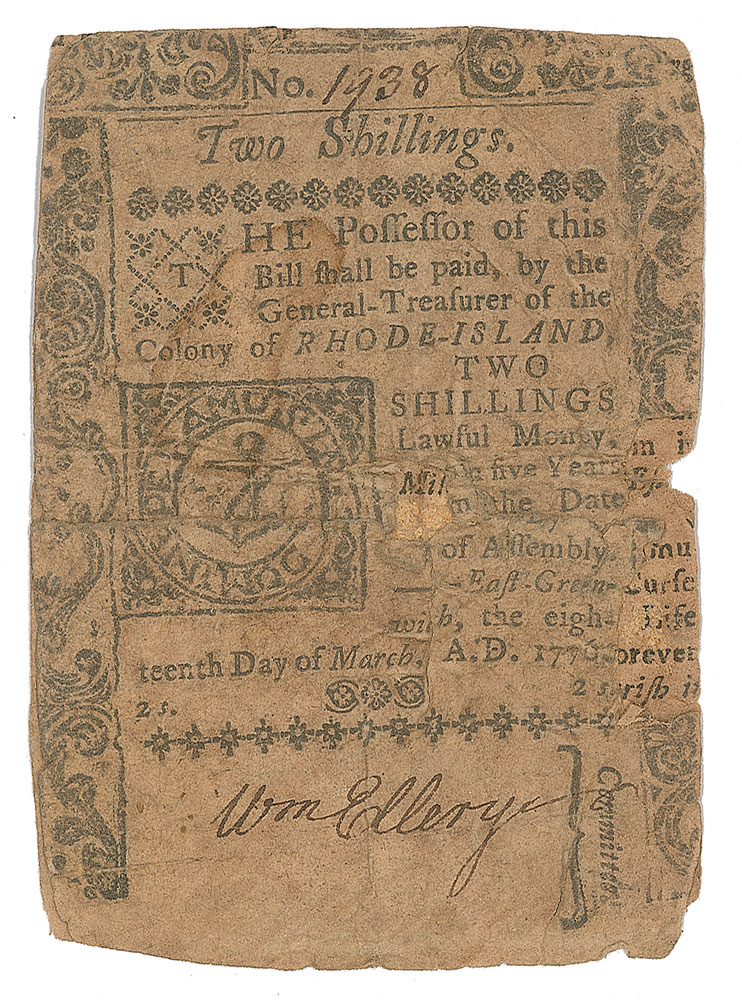 No. 1938
Two Shillings.
THE Poſſeſſor of this
Bill ſhall be paid, by the
General-Treaſurer of the
Colony of RHODE-ISLAND,
TWO
SHILLINGS
Lawful Money,
five Years
the Date
of Aſſembly.
Eaſt-Green-
wich, the eigh-
teenth Day of March, A.D. 1776.
2 s. 2 s.
IN TE DOMINE SPERAMUS
Mil
m i
mu
urſe
Life
orever
riſh i
Wm Ellery
Committee.